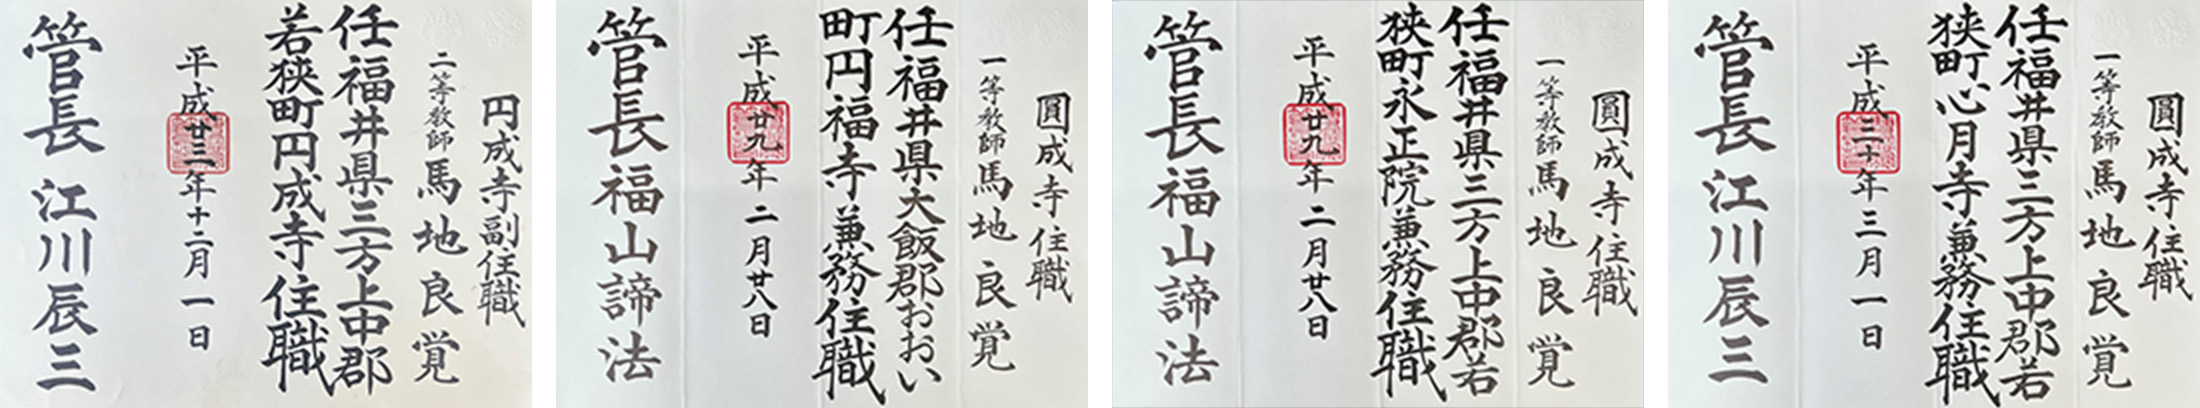 円成寺副住職
二等教師 馬地良覚
任福井県三方上中郡
若狭町円成寺住職
平成廿三年十二月一日
管長 江川辰三
圓成寺住職
一等教師 馬地良覚
任福井県大飯郡おおい
町円福寺兼務住職
平成廿九年二月廿八日
管長 福山諦法
圓成寺住職
一等教師 馬地良覚
任福井県三方上中郡若
狭町永正院兼務住職
平成廿九年二月廿八日
管長 福山諦法
圓成寺住職
一等教師 馬地良覚
任福井県三方上中郡若
狭町心月寺兼務住職
平成三十年三月一日
管長 江川辰三